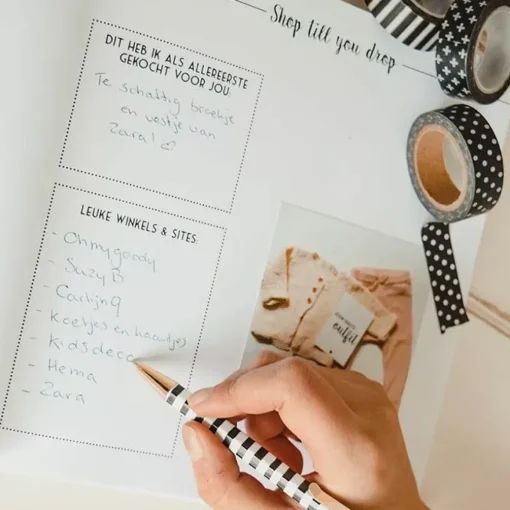 Shop till you drop
DIT HEB IK ALS ALLEREERSTE
GEKOCHT VOOR JOU:
Te schattig broekje
en vestje van
Zara!
LEUKE WINKELS & SITES:
- Ohmygoody
- Suzy B
- CarlijnQ
- Koetjes en haantjes
- Kidsdeco
- Hema
- Zara
outfit